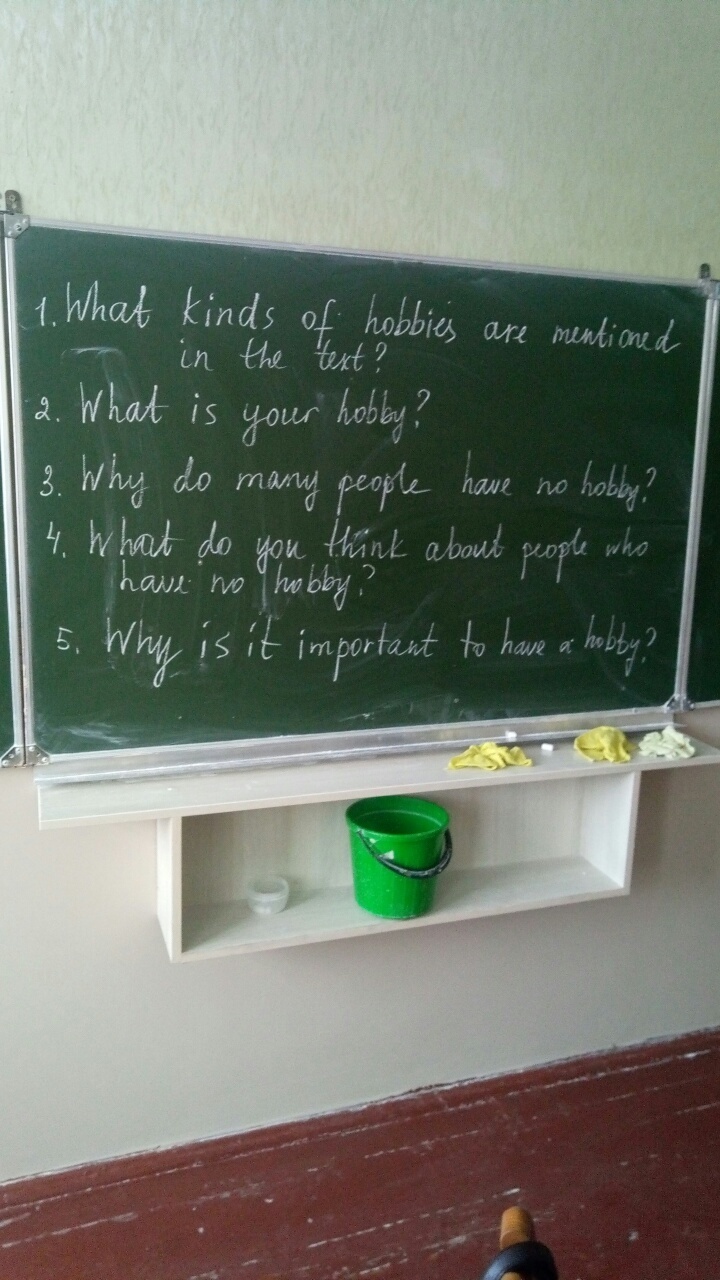 1. What kinds of hobbies are mentioned
in the text?
2. What is your hobby?
3. Why do many people have no hobby?
4. What do you think about people who
have no hobby?
5. Why is it important to have a hobby?